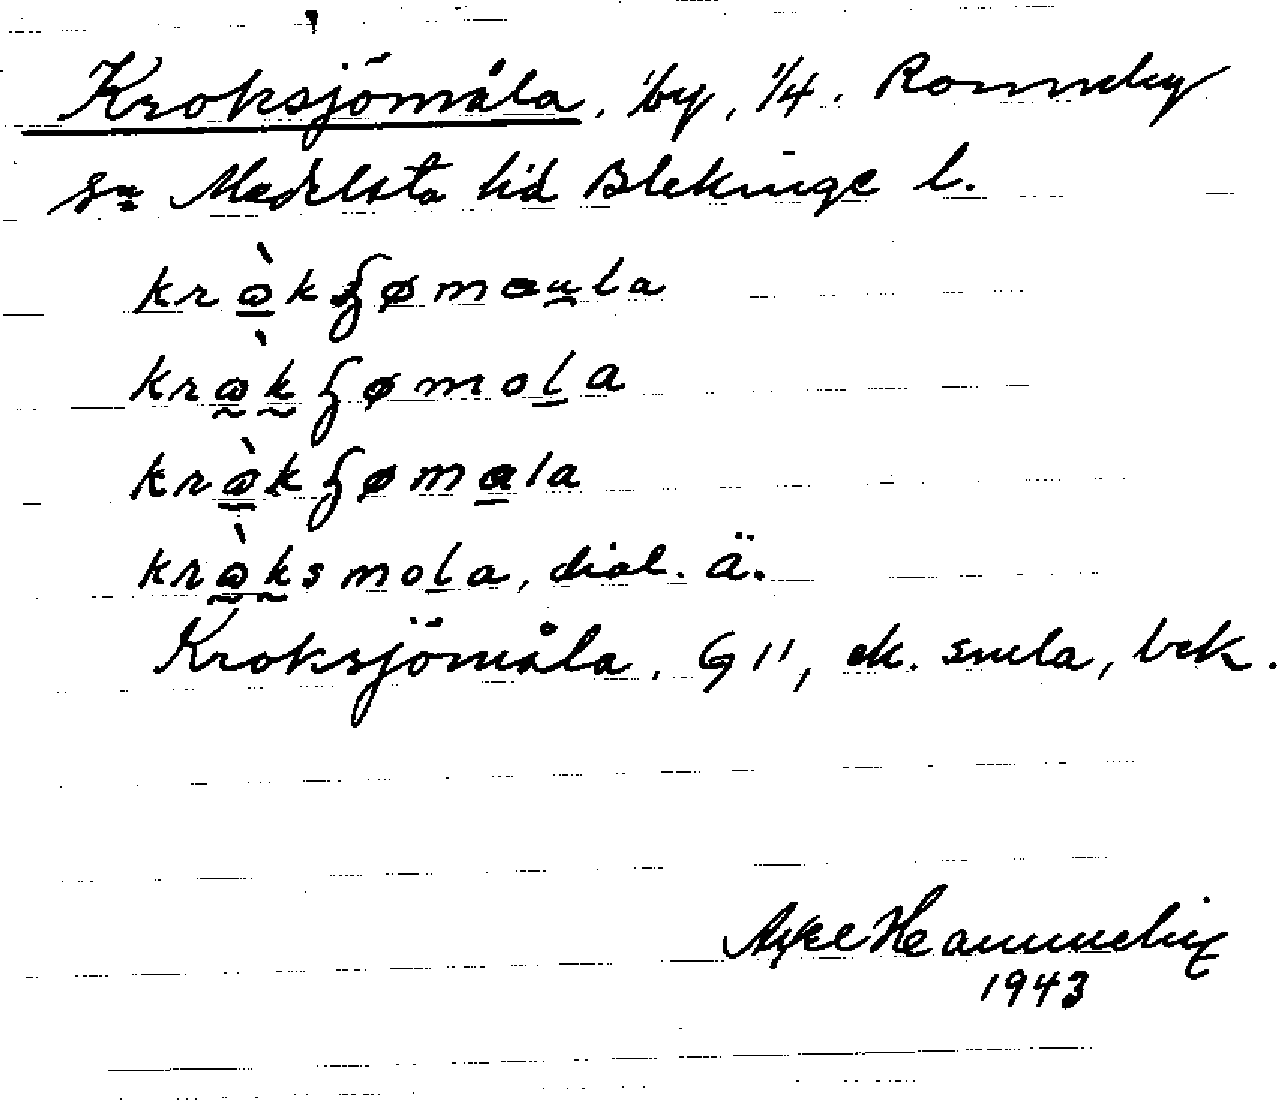 Kroksjömåla, by, 1/4. Ronneby
sn Medelsta hd Blekinge l.
kràkʃømaula
kràkʃømola
kràkʃømala
kràksmola, dial. ä.
Kroksjömåla, G 11, ek. smla, bek.
Axel Hammelig
1943